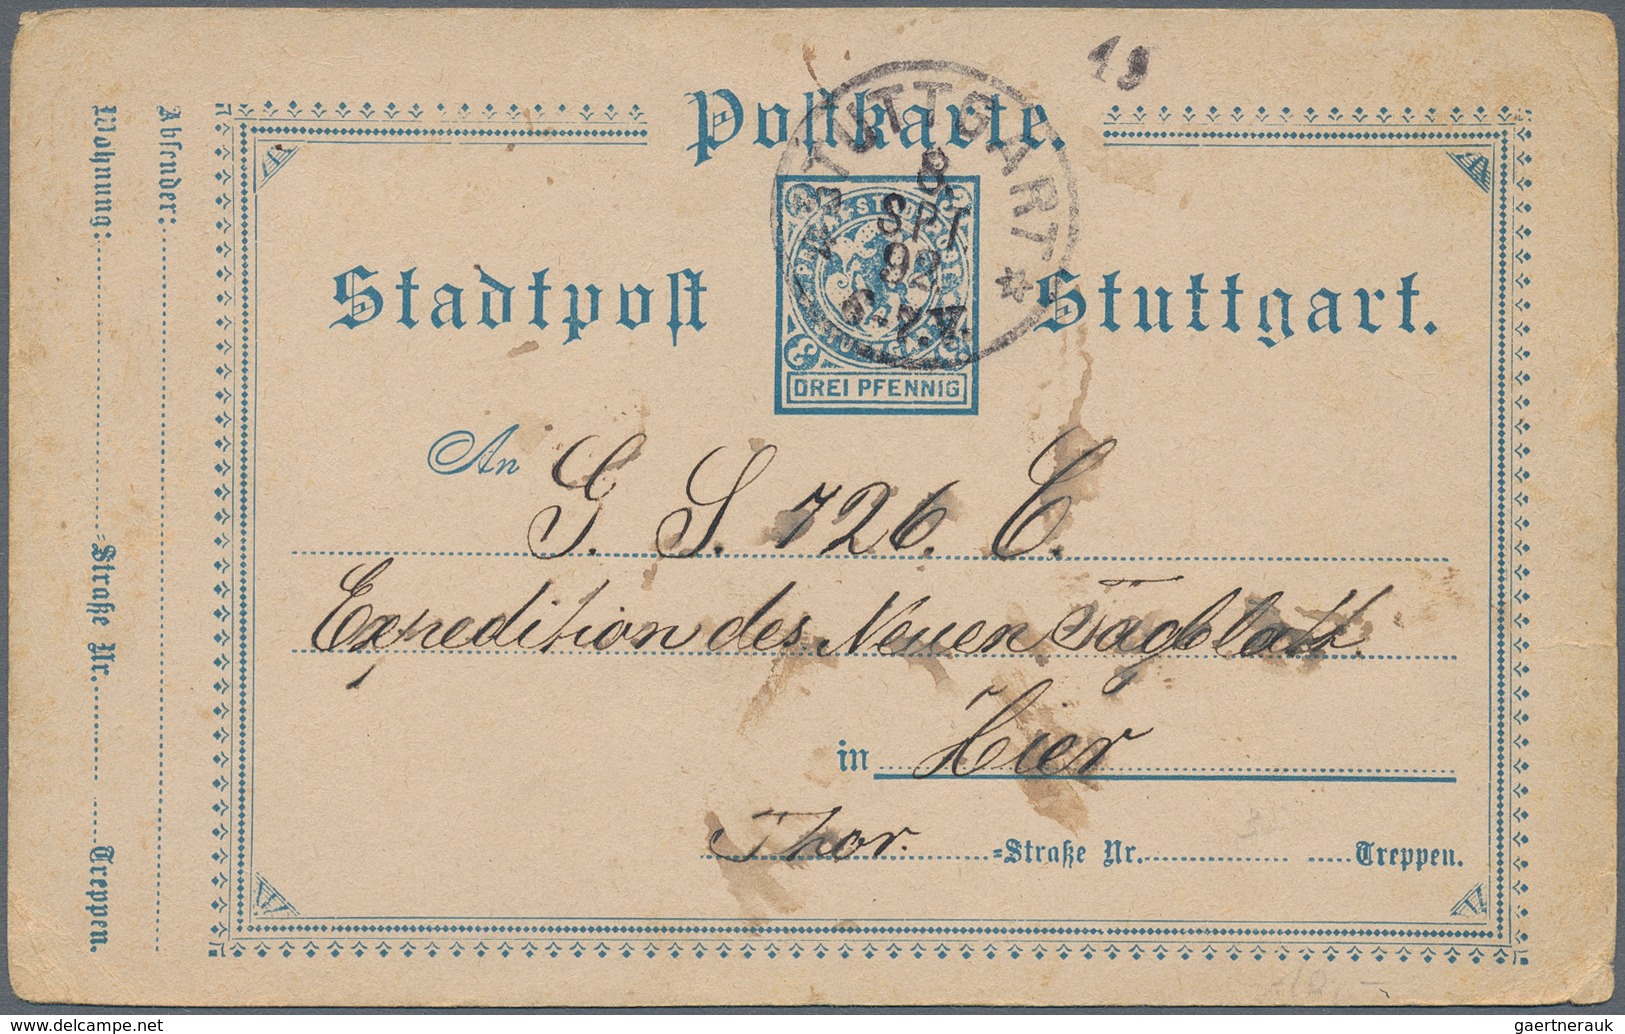 Postkarte.
Stadtpost Stuttgart.
STUTTGART
8.
SPT.
92
6-7.V.
19
DREI PFENNIG
An G. S. 726. C.
Expedition des Neuen Tagblatt
in Hier
Thor. =Straße Nr. Treppen.
Absender:
Wohnung: =Straße Nr. Treppen.
www.delcampe.net
gaertnerauk